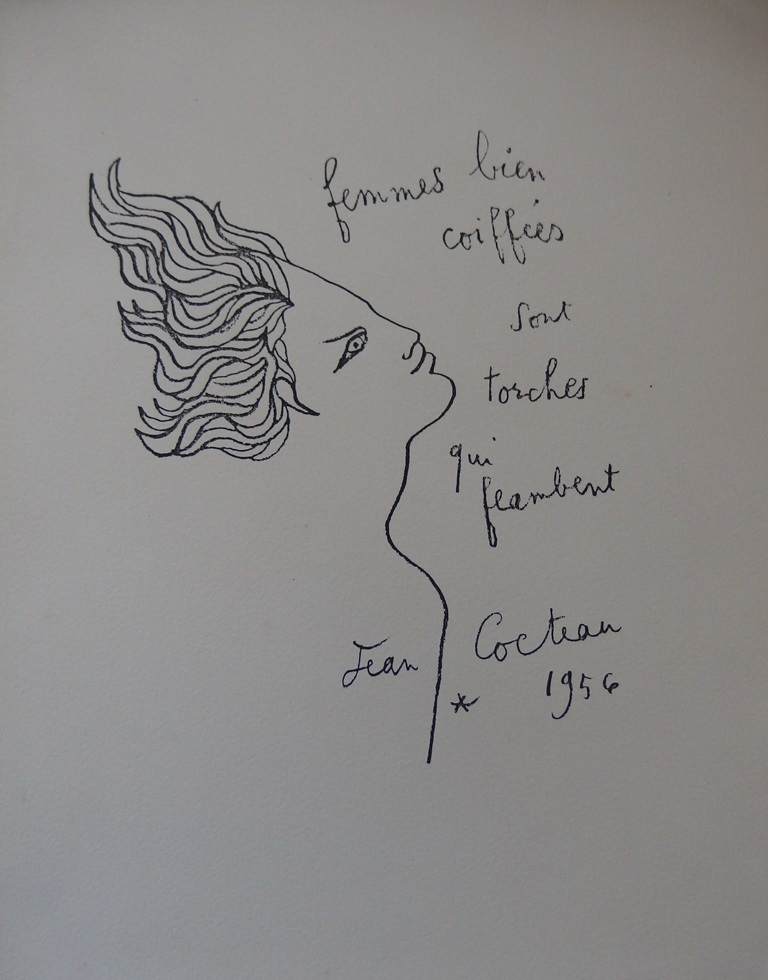 femmes bien
coiffées
sont
torches
qui
flambent
Jean Cocteau
* 1956